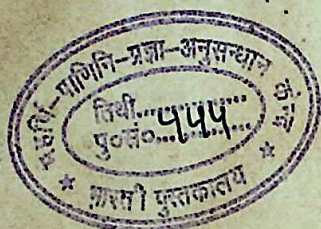 महर्षि-पाणिनि-प्रज्ञा-अनुसन्धान केन्द्र
तिथी..................
पु०सं०..५५५..........
* भारती पुस्तकालय *